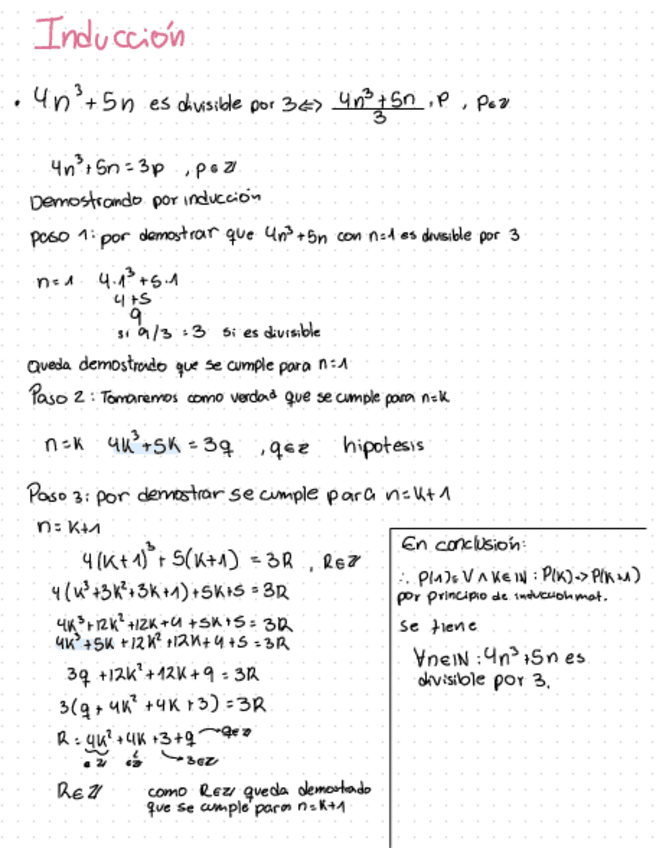 Inducción
• 4n³+5n es divisible por 3 <=> 4n³+5n / 3 , P , P∈Z
4n³+5n = 3p , p∈Z
Demostrando por inducción
paso 1: por demostrar que 4n³+5n con n=1 es divisible por 3
n=1 4·1³+5·1
4+5
9
si 9/3 = 3 si es divisible
Queda demostrado que se cumple para n=1
Paso 2: Tomaremos como verdad que se cumple para n=k
n=k 4k³+5k = 3q , q∈Z hipotesis
Paso 3: por demostrar se cumple para n=k+1
n=k+1
4(k+1)³ + 5(k+1) = 3R , R∈Z
4(k³+3k²+3k+1)+5k+5 = 3R
4k³+12k²+12k+4+5k+5 = 3R
4k³+5k+12k²+12k+4+5 = 3R
3q+12k²+12k+9 = 3R
3(q+4k²+4k+3) = 3R
R = 4k²+4k+3+q → q∈Z
∈Z ∈Z → 3∈Z
R∈Z como R∈Z queda demostrado
que se cumple para n=k+1
En conclusión:
∴ P(1)≡V ∧ K∈IN : P(K)->P(K+1)
por principio de induccion mat.
se tiene
∀n∈IN : 4n³+5n es
divisible por 3.